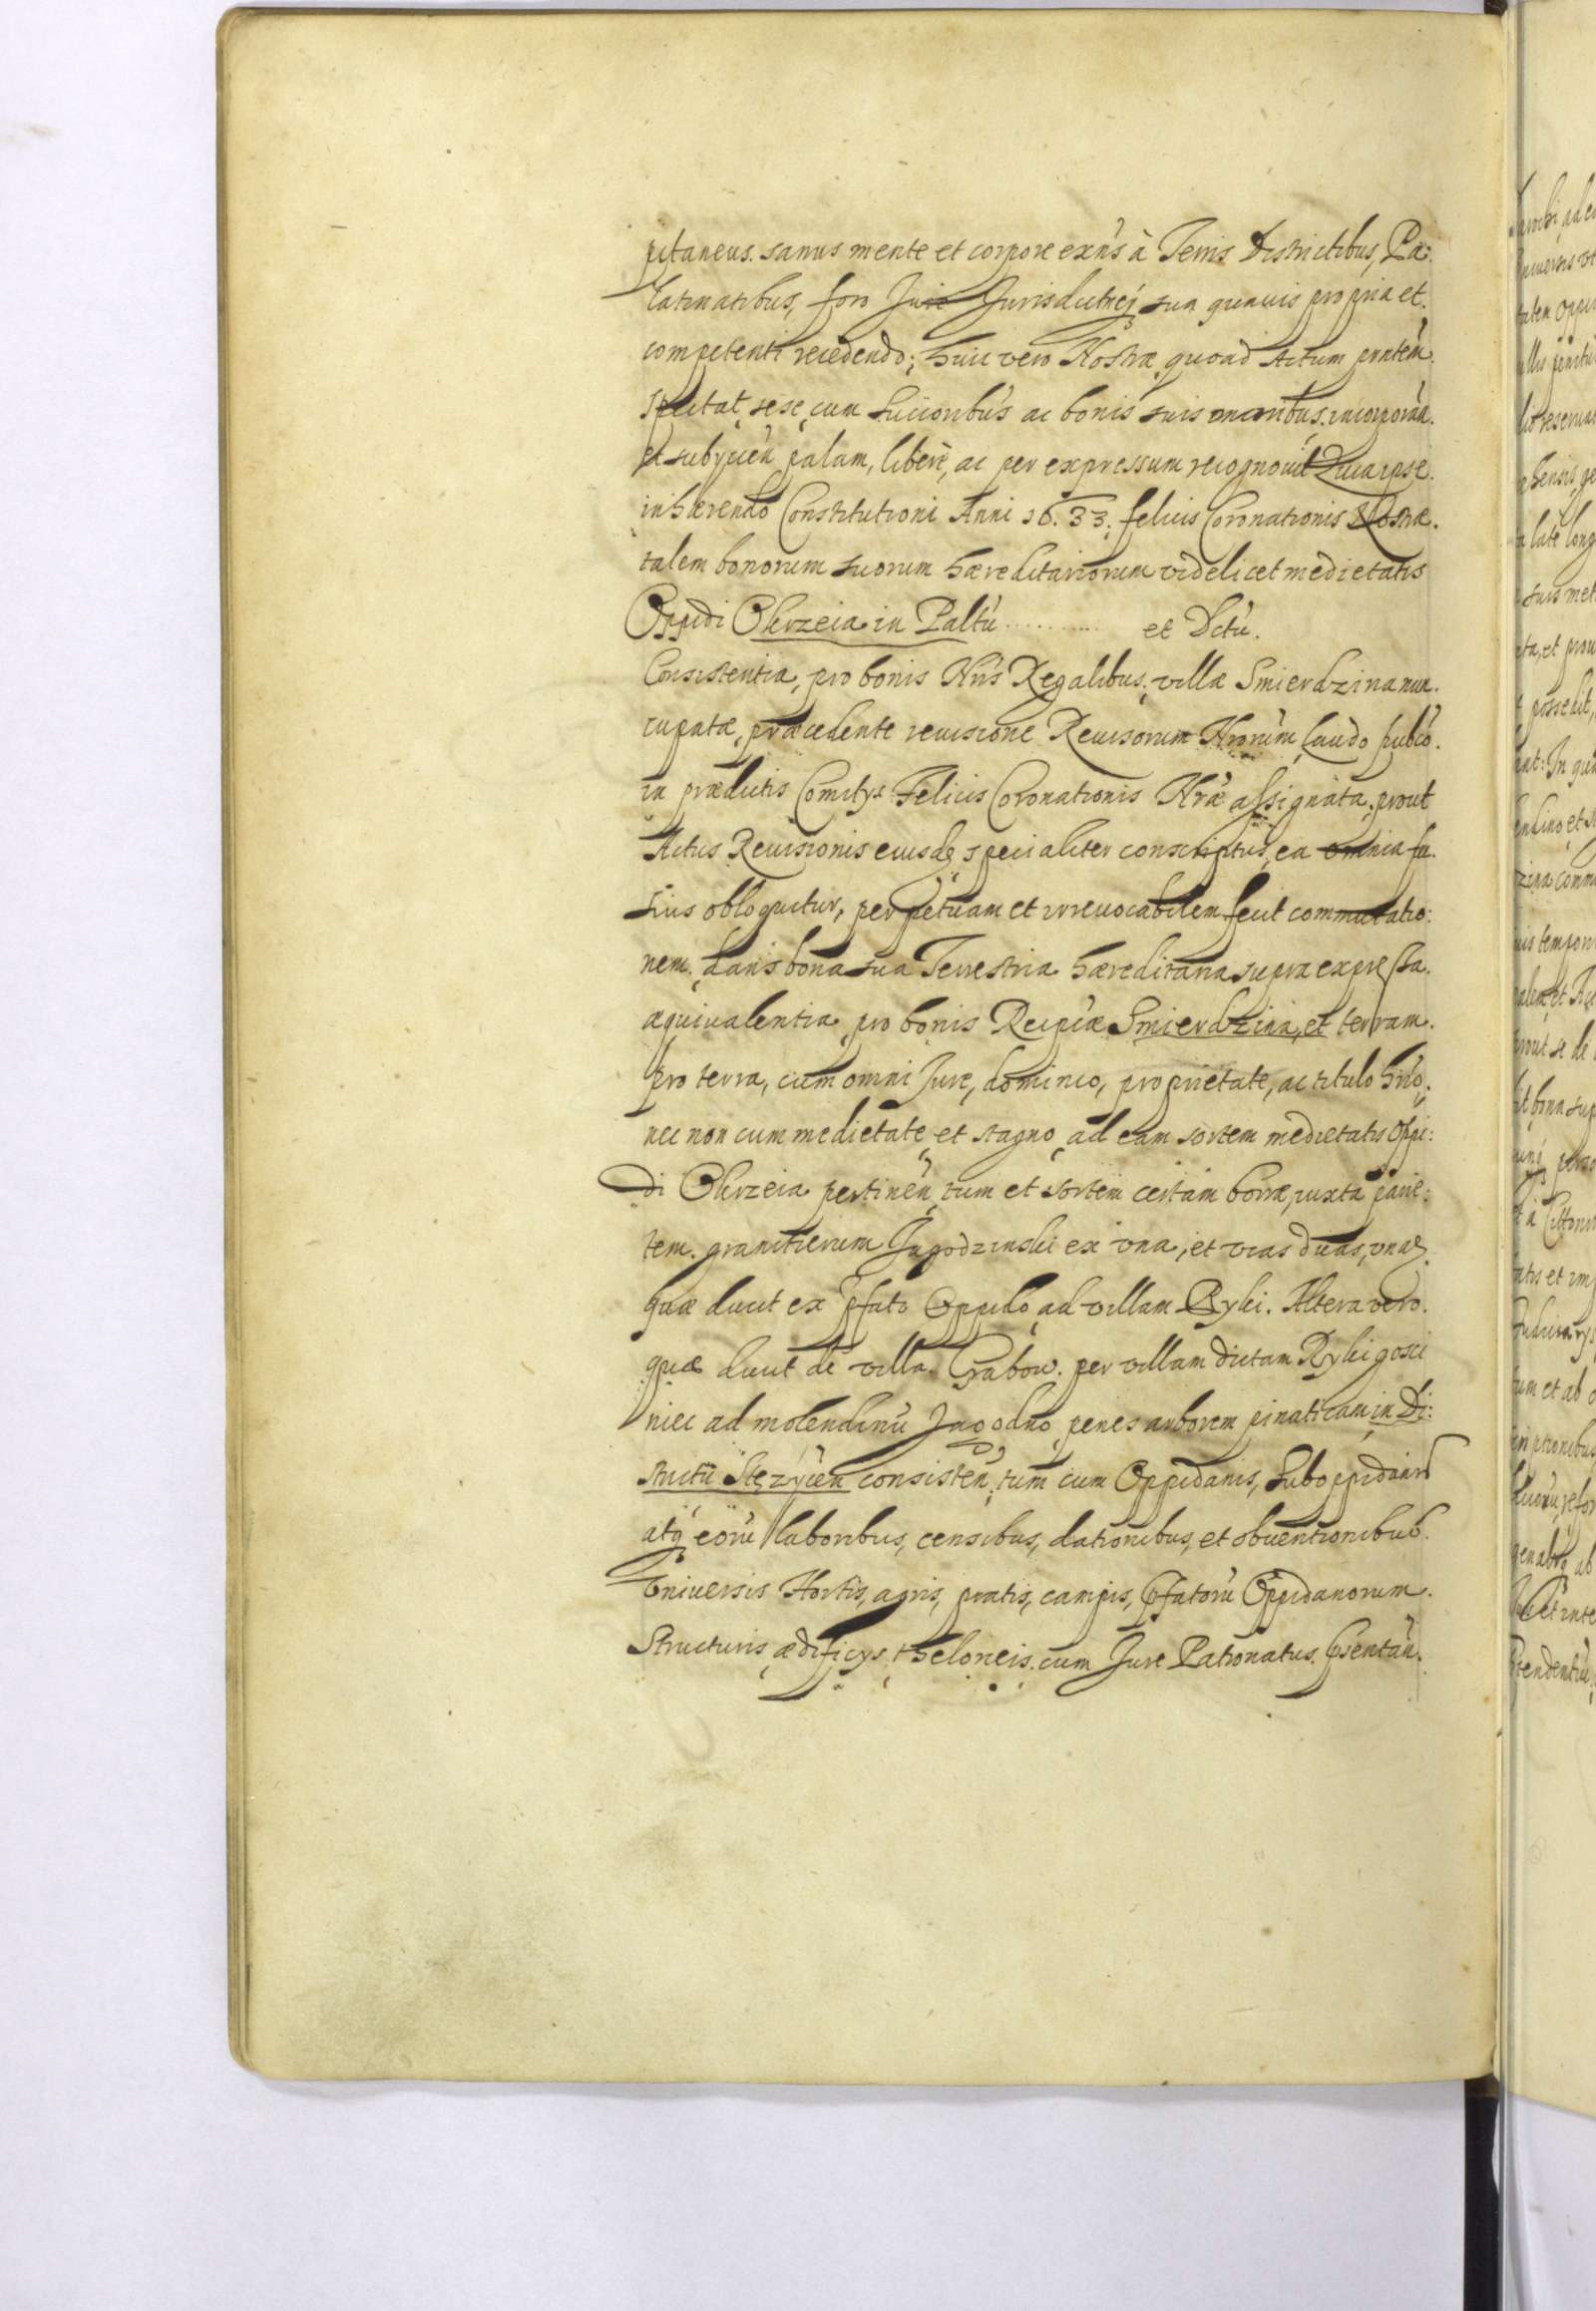 pitaneus. sanus mente et corpore exñs à Terris Districtibus, Pa:
latinatibus, foro Jure Jurisdictnẽj sua quavis propria et.
competenti recedendo; huic vero Nostræ quoad Actum pñtem.
spectat, sese cum Succoribus ac bonis suis omnibus incorporañ.
et subyciẽn palam, liberè, ac per expressum recognovit Quia ipse.
inhærendo Constitutioni Anni 16.33. felicis Coronationis Nostræ.
talem bonorum suorum hæreditariorum videlicet medietatis
Oppidi Okrzeia in Paltũ .......... et Dctũ.
Consistentia, pro bonis Nris Regalibus, villæ Smierdzina nun.
cupatæ, præcedente revisione Revisorum Nrorũm laudo pubco.
in prædictis Comitys Felicis Coronationis Nræ assignata, prout
Actus Revisionis eiusdẽ specialiter conscriptus, ea omnia fu.
sius obloquitur, perpetuam et irrevocabilem fecit commutatio:
nem. dans bona sua Terrestria hæreditaria supra expressa.
æquivalentia pro bonis Reipcæ Smierdzina, et terram.
pro terra, cum omni Jure, dominio, proprietate, ac titulo hrio.
nec non cum medietate et stagno ad eam sortem medietatis Oppi:
di Okrzeia pertineñ tum et sortem certam borræ, iuxta parie:
tem. granicierum Jagodzinski ex una, et vias duas, unã
quæ ducit ex pfato Oppido ad villam Ryki. Altera vero.
quæ ducit de villa Grabow. per villam dictam Ryki gosci
niec ad molendinũ Jagodno penes arborem pinaticam in Di:
strictũ Stęzyceñ consisteñ, tum cum Oppidanis, Suboppidanis
atq eorũ laboribus, censibus, dationibus, et obventionibus.
Universis Hortis, agris, pratis, campis, pfatorũ Oppidanorum.
Structuris, ædificys, theloneis. cum Jure Patronatus. psentañ.